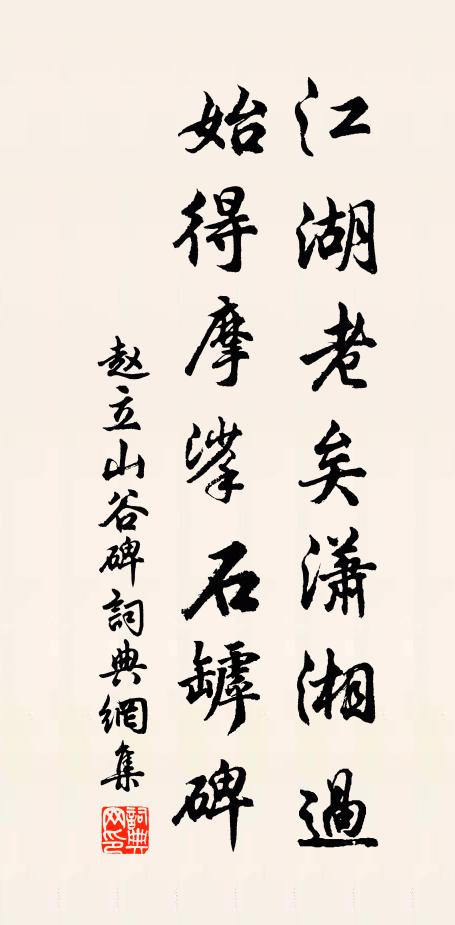 江湖老矣瀟湘過
始得摩挲石罅碑
趙立山谷碑詞典網集
詞典网印